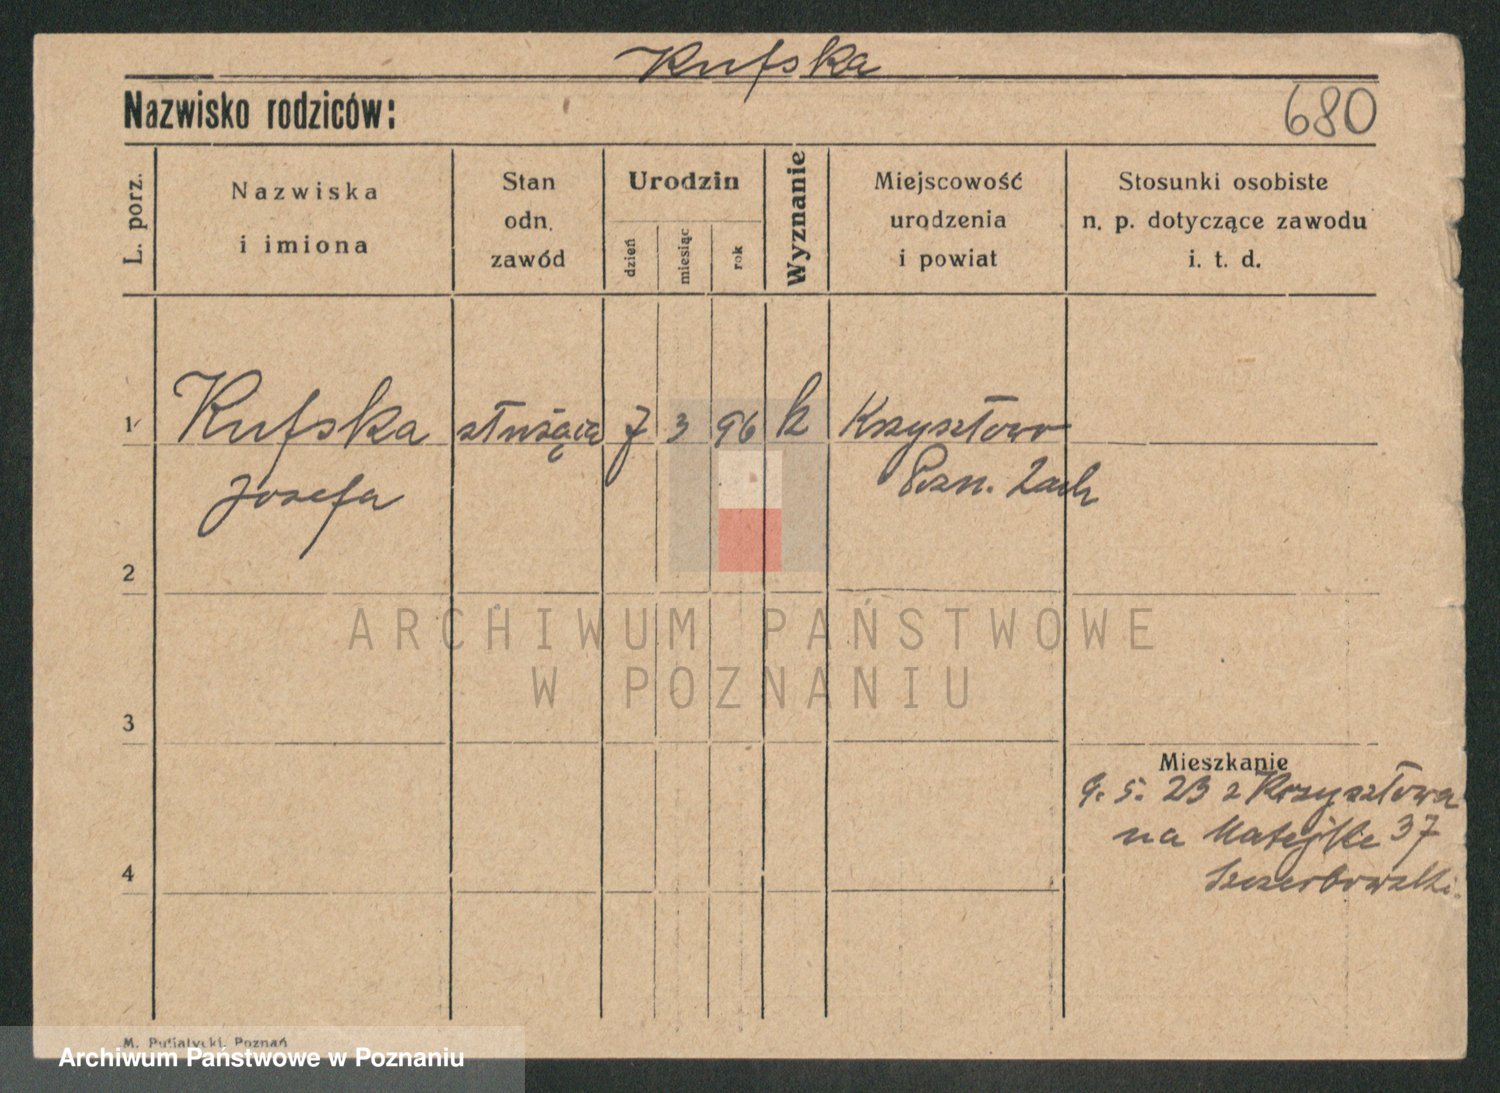 Kufska
Nazwisko rodziców:
680
L. porz.
Nazwiska
i imiona
Stan
odn.
zawód
Urodzin
dzień
miesiąc
rok
Wyznanie
Miejscowość
urodzenia
i powiat
Stosunki osobiste
n. p. dotyczące zawodu
i. t. d.
1 Kufska służąca 7 3 96 k Krzysztowo
Josefa Pozn. Zach
2
ARCHIWUM PAŃSTWOWE
W POZNANIU
3
Mieszkanie
9. 5. 23 z Krzysztowa
na Matejki 37
4
M. Putiatycki, Poznań
Archiwum Państwowe w Poznaniu